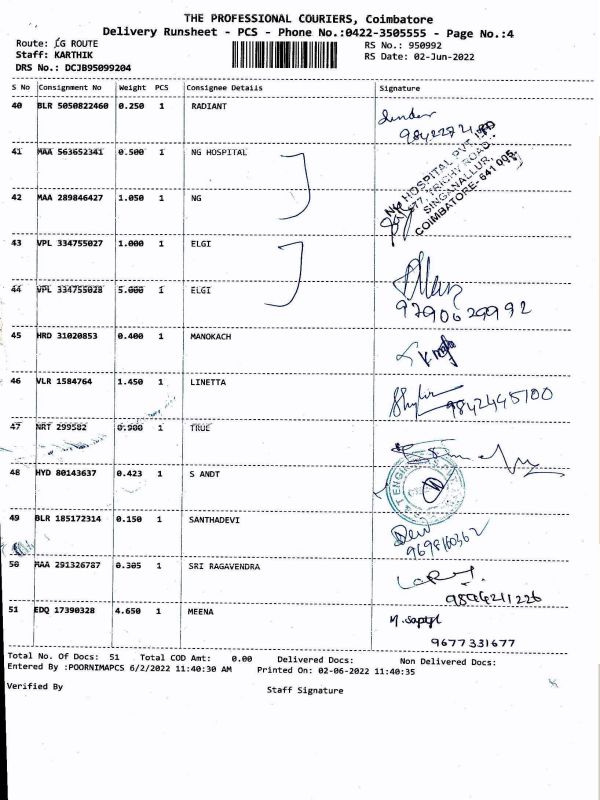 THE PROFESSIONAL COURIERS, Coimbatore
Delivery Runsheet - PCS - Phone No.:0422-3505555 - Page No.:4
Route: LG ROUTE
RS No.: 950992
Staff: KARTHIK
RS Date: 02-Jun-2022
DRS No.: DCJB95099204
S No Consignment No Weight PCS Consignee Details Signature
40 BLR 5050822460 0.250 1 RADIANT
41 MAA 563652341 0.500 1 NG HOSPITAL
NG HOSPITAL PVT LTD
577, TRICHY ROAD
SINGANALLUR,
COIMBATORE- 641 005.
42 MAA 289846427 1.050 1 NG
43 VPL 334755027 1.000 1 ELGI
44 VPL 334755028 5.000 1 ELGI
9790629992
45 HRD 31020853 0.400 1 MANOKACH
46 VLR 1584764 1.450 1 LINETTA
9842445100
47 NRT 299582 0.900 1 TRUE
48 HYD 80143637 0.423 1 S ANDT
49 BLR 185172314 0.150 1 SANTHADEVI
Devi
9698160362
50 MAA 291326787 0.305 1 SRI RAGAVENDRA
9894211226
51 EDQ 17390328 4.650 1 MEENA
9677331677
Total No. Of Docs: 51 Total COD Amt: 0.00 Delivered Docs: Non Delivered Docs:
Entered By :POORNIMAPCS 6/2/2022 11:40:30 AM Printed On: 02-06-2022 11:40:35
Verified By
Staff Signature